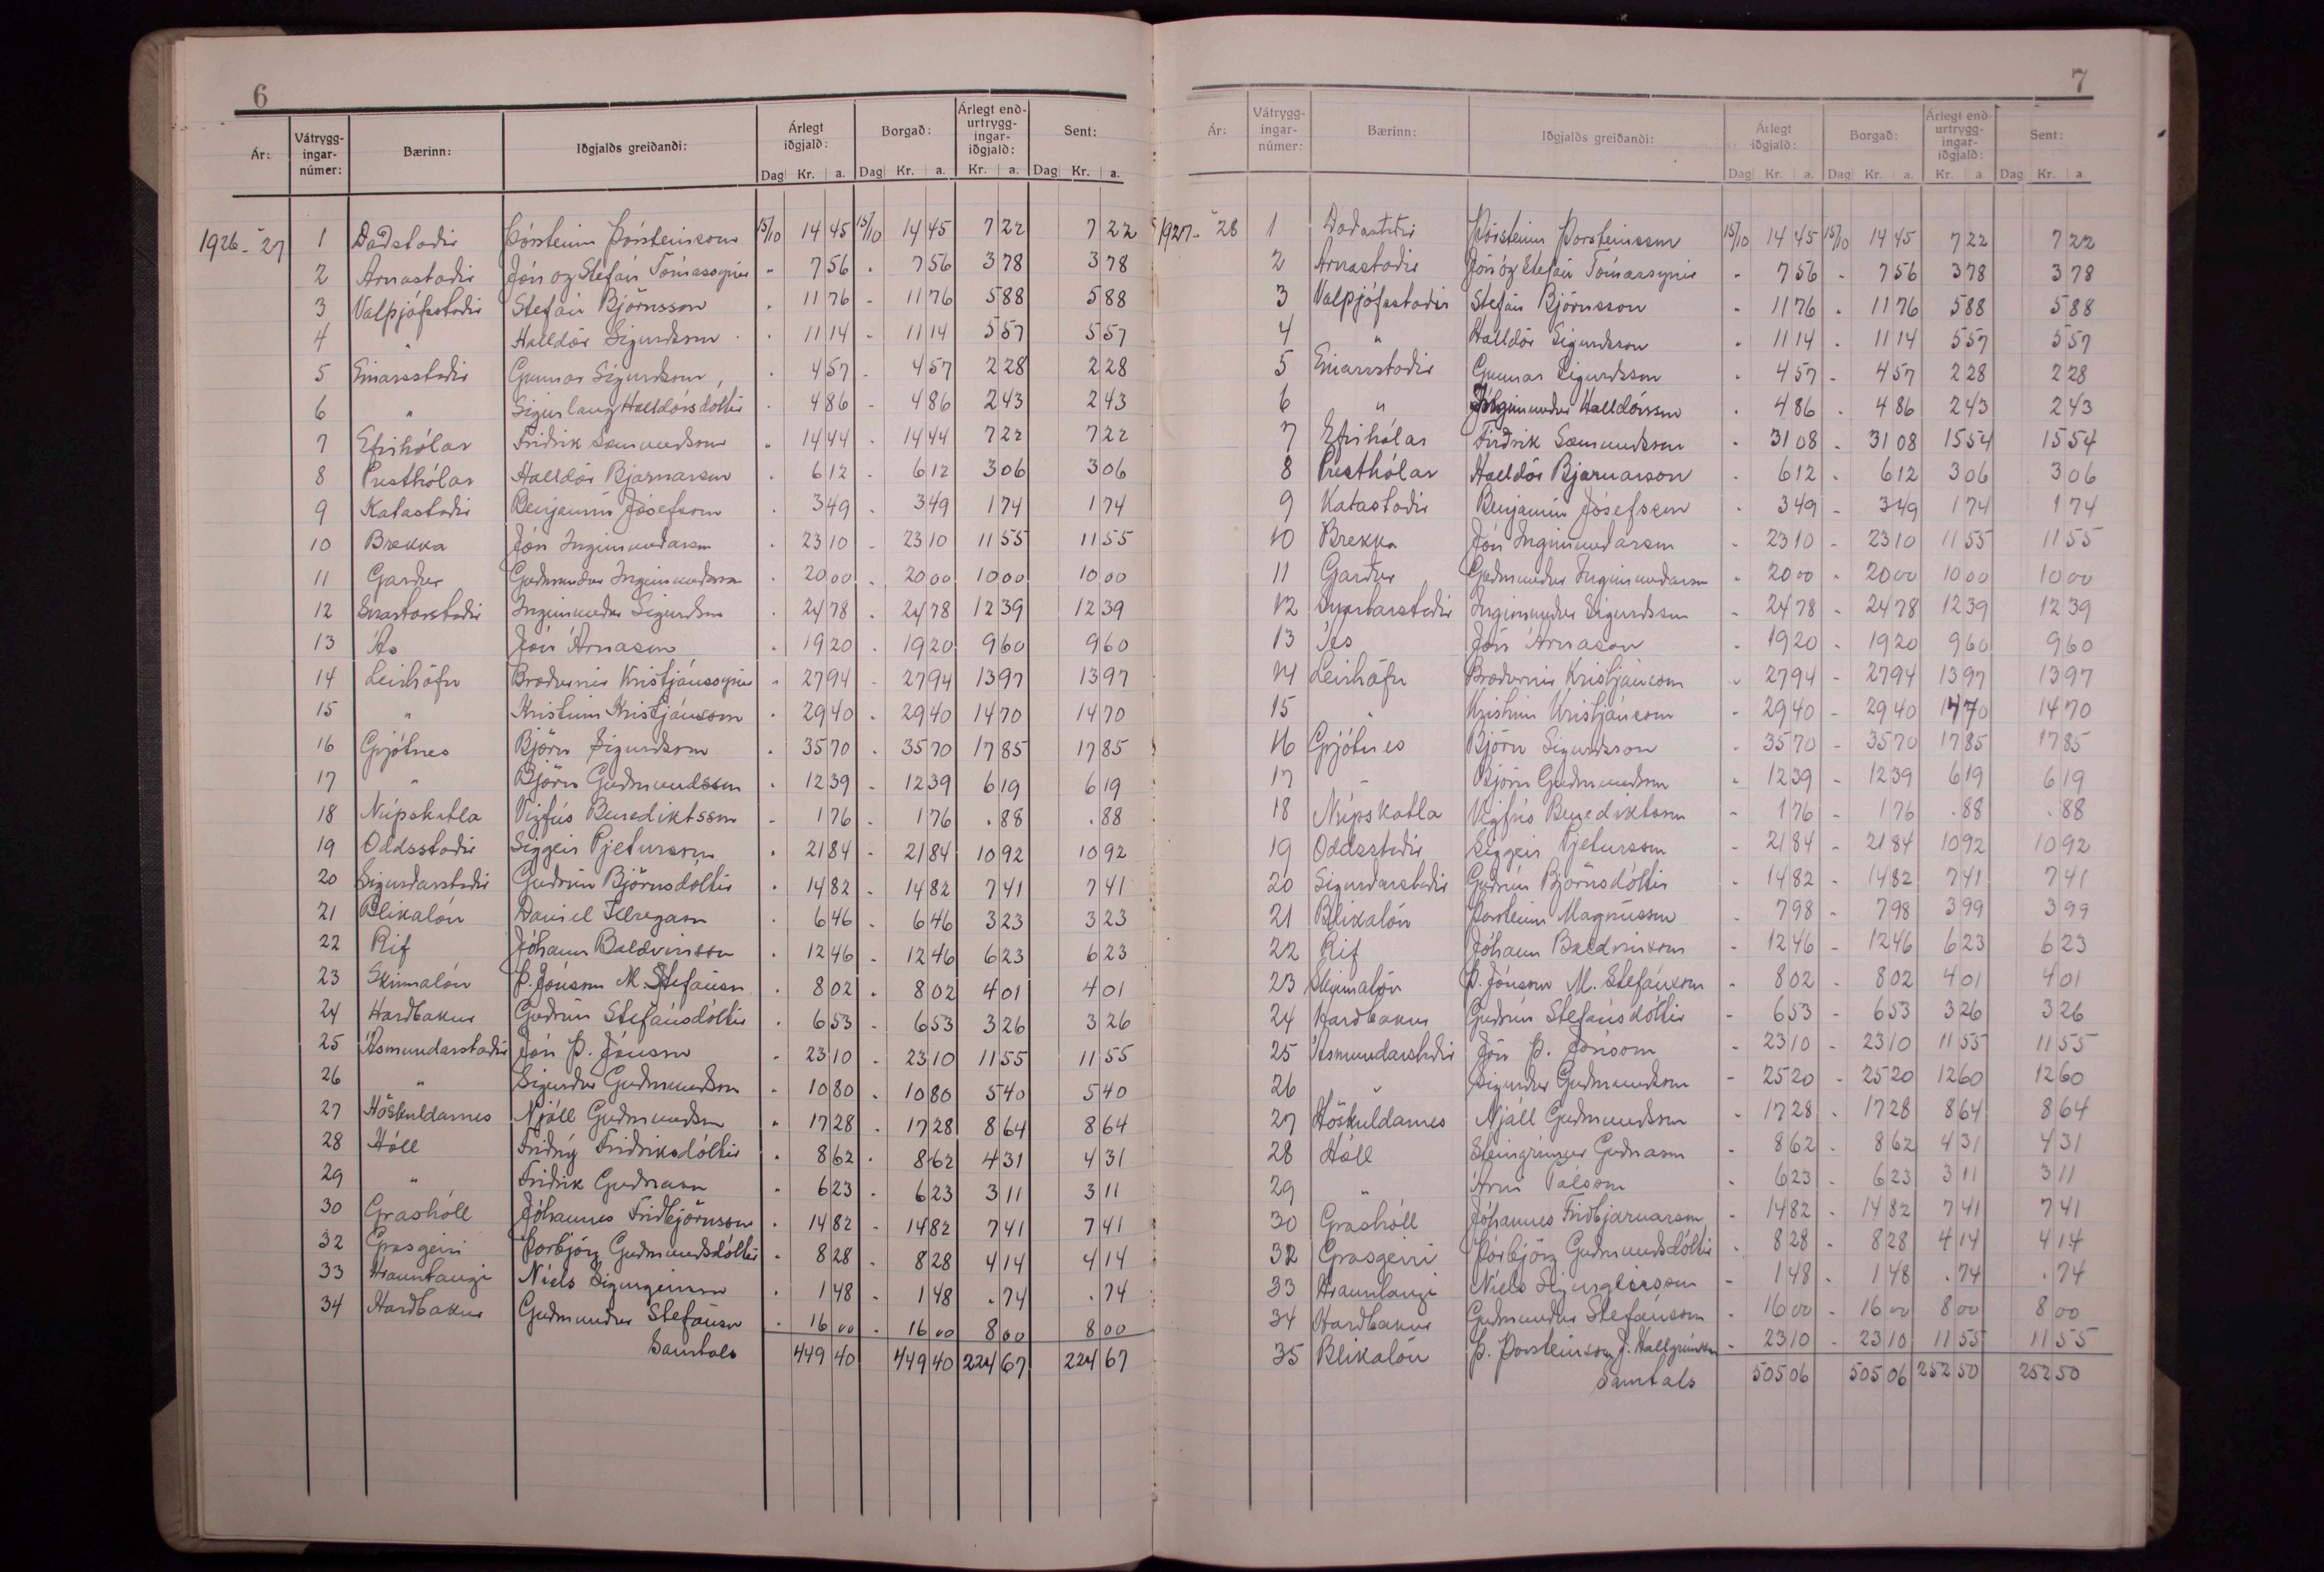 6
Ár: Vátrygg-ingar-númer: Bærinn: Iðgjalds greiðandi: Árlegt iðgjald: Borgað: Árlegt end-urtrygg-ingar-iðgjald: Sent:
Dag Kr. a. Dag Kr. a. Kr. a. Dag Kr. a.
1926-27 1 Daðastaðir Þórsteinn Þórsteinsson 15/10 14 45 15/10 14 45 7 22 7 22
2 Arnastaðir Jón og Stefán Tómassynir " 7 56 " 7 56 3 78 3 78
3 Valþjófsstaðir Stefán Björnsson " 11 76 " 11 76 5 88 5 88
4 " Halldór Sigurdsson " 11 14 " 11 14 5 57 5 57
5 Einarsstaðir Gunnar Sigurdsson " 4 57 " 4 57 2 28 2 28
6 " Sigurlaug Halldórsdóttir " 4 86 " 4 86 2 43 2 43
7 Efrihólar Friðrik Sæmundsson " 14 44 " 14 44 7 22 7 22
8 Presthólar Halldór Bjarnarson " 6 12 " 6 12 3 06 3 06
9 Katastaðir Benjamín Jósefsson " 3 49 " 3 49 1 74 1 74
10 Brekka Jón Ingimundarson " 23 10 " 23 10 11 55 11 55
11 Garður Guðmundur Ingimundarson " 20 00 " 20 00 10 00 10 00
12 Snartarstaðir Ingimundur Sigurdsson " 24 78 " 24 78 12 39 12 39
13 Ás Jón Árnason " 19 20 " 19 20 9 60 9 60
14 Leirhöfn Bræðurnir Kristjánssynir " 27 94 " 27 94 13 97 13 97
15 " Kristinn Kristjánsson " 29 40 " 29 40 14 70 14 70
16 Grjótnes Björn Sigurdsson " 35 70 " 35 70 17 85 17 85
17 " Björn Guðmundsson " 12 39 " 12 39 6 19 6 19
18 Núpskatla Vigfús Benediktsson " 1 76 " 1 76 . 88 . 88
19 Oddsstaðir Siggeir Pjetursson " 21 84 " 21 84 10 92 10 92
20 Sigurdarstaðir Guðrún Björnsdóttir " 14 82 " 14 82 7 41 7 41
21 Blikalón Daníel Illugason " 6 46 " 6 46 3 23 3 23
22 Rif Jóhann Baldvinsson " 12 46 " 12 46 6 23 6 23
23 Skinnalón Þ. Jónsson M. Stefánsson " 8 02 " 8 02 4 01 4 01
24 Harðbakur Guðrún Stefánsdóttir " 6 53 " 6 53 3 26 3 26
25 Ásmundarstaðir Jón Þ. Jónsson " 23 10 " 23 10 11 55 11 55
26 " Sigurður Guðmundsson " 10 80 " 10 80 5 40 5 40
27 Höskuldarnes Njáll Guðmundsson " 17 28 " 17 28 8 64 8 64
28 Hóll Friðný Friðriksdóttir " 8 62 " 8 62 4 31 4 31
29 " Friðrik Guðnason " 6 23 " 6 23 3 11 3 11
30 Grashóll Jóhannes Friðbjörnsson " 14 82 " 14 82 7 41 7 41
32 Grasgeiri Þorbjörg Guðmundsdóttir " 8 28 " 8 28 4 14 4 14
33 Hrauntangi Níels Sigurgeirsson " 1 48 " 1 48 . 74 . 74
34 Harðbakur Guðmundur Stefánsson " 16 00 " 16 00 8 00 8 00
Samtals 449 40 449 40 224 67 224 67
7
Ár: Vátrygg-ingar-númer: Bærinn: Iðgjalds greiðandi: Árlegt iðgjald: Borgað: Árlegt end-urtrygg-ingar-iðgjald: Sent:
Dag Kr. a. Dag Kr. a. Kr. a. Dag Kr. a
1927-28 1 Daðastaðir Þórsteinn Þorsteinsson 15/10 14 45 15/10 14 45 7 22 7 22
2 Arnastaðir Jón og Stefán Tómassynir " 7 56 " 7 56 3 78 3 78
3 Valþjófsstaðir Stefán Björnsson " 11 76 " 11 76 5 88 5 88
4 " Halldór Sigurdsson " 11 14 " 11 14 5 57 5 57
5 Einarsstaðir Gunnar Sigurdsson " 4 57 " 4 57 2 28 2 28
6 " Halldórsson " 4 86 " 4 86 2 43 2 43
7 Efrihólar Friðrik Sæmundsson " 31 08 " 31 08 15 54 15 54
8 Presthólar Halldór Bjarnarson " 6 12 " 6 12 3 06 3 06
9 Katastaðir Benjamín Jósefsson " 3 49 " 3 49 1 74 1 74
10 Brekka Jón Ingimundarson " 23 10 " 23 10 11 55 11 55
11 Garður Guðmundur Ingimundarson " 20 00 " 20 00 10 00 10 00
12 Snartarstaðir Ingimundur Sigurdsson " 24 78 " 24 78 12 39 12 39
13 Ás Jón Árnason " 19 20 " 19 20 9 60 9 60
14 Leirhöfn Bræðurnir Kristjánsson " 27 94 " 27 94 13 97 13 97
15 " Kristinn Kristjánsson " 29 40 " 29 40 14 70 14 70
16 Grjótnes Björn Sigurdsson " 35 70 " 35 70 17 85 17 85
17 " Björn Guðmundsson " 12 39 " 12 39 6 19 6 19
18 Núpskatla Vigfús Benediktsson " 1 76 " 1 76 . 88 . 88
19 Oddsstaðir Siggeir Pjetursson " 21 84 " 21 84 10 92 10 92
20 Sigurdarstaðir Guðrún Björnsdóttir " 14 82 " 14 82 7 41 7 41
21 Blikalón Þorsteinn Magnússon " 7 98 " 7 98 3 99 3 99
22 Rif Jóhann Baldvinsson " 12 46 " 12 46 6 23 6 23
23 Skinnalón Þ. Jónsson M. Stefánsson " 8 02 " 8 02 4 01 4 01
24 Harðbakur Guðrún Stefánsdóttir " 6 53 " 6 53 3 26 3 26
25 Ásmundarstaðir Jón Þ. Jónsson " 23 10 " 23 10 11 55 11 55
26 " Sigurður Guðmundsson " 25 20 " 25 20 12 60 12 60
27 Höskuldarnes Njáll Guðmundsson " 17 28 " 17 28 8 64 8 64
28 Hóll Steingrímur Guðnason " 8 62 " 8 62 4 31 4 31
29 " Árni Pálsson " 6 23 " 6 23 3 11 3 11
30 Grashóll Jóhannes Friðbjarnarson " 14 82 " 14 82 7 41 7 41
32 Grasgeiri Þorbjörg Guðmundsdóttir " 8 28 " 8 28 4 14 4 14
33 Hrauntangi Níels Sigurgeirsson " 1 48 " 1 48 . 74 . 74
34 Harðbakur Guðmundur Stefánsson " 16 00 " 16 00 8 00 8 00
35 Blikalón Þ. Þorsteinsson J. Hallgrímsson " 23 10 " 23 10 11 55 11 55
Samtals 505 06 505 06 252 50 252 50